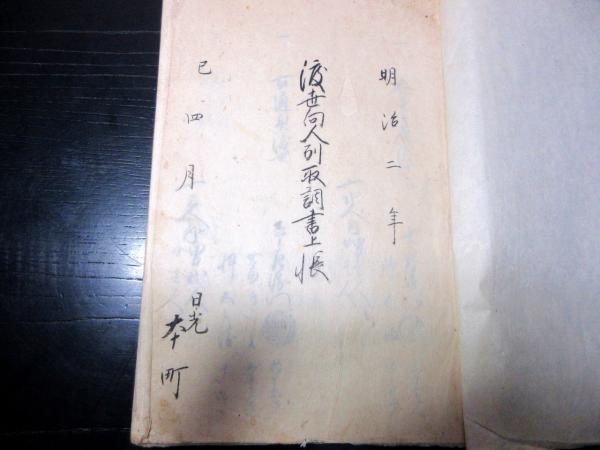 明治二年
渡世向人別取調書上帳
巳四月
日光
本町